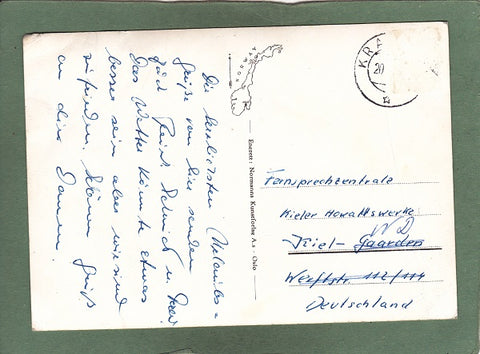 Die herzlichsten Urlaubs=
grüße von hier senden
Das Wetter könnte etwas
besser sein aber wir sind
zufrieden. Gruß
an die Damen.
NORWAY
Enerett: Normanns Kunstforlag A.s Oslo
KR
20
Fernsprechzentrale
Kieler Howaldtswerke
Kiel- Gaarden
Werftstr. 112/114
Deutschland